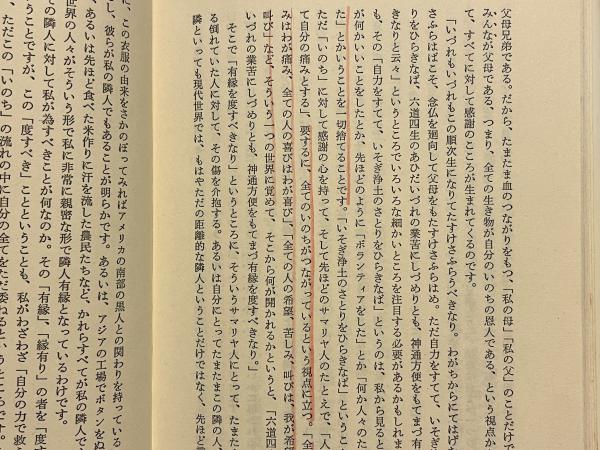 父母兄弟である。だから、たまたま血のつながりをもつ、「私の母」「私の父」のことだけで
みんなが父母である、つまり、全ての生き物が自分のいのちの恩人である、という視点か
て、すべてに対して感謝のこころが生まれてくるのです。
「いづれもいづれもこの順次生になりてたすけさふらうべきなり。わがちからにてはげむ
さふらはばこそ、念仏を廻向して父母をもたすけさふらはめ。ただ自力をすてて、いそぎ
りをひらきなば、六道四生のあひだいづれの業苦にしづめりとも、神通方便をもてまづ有
きなりと云々」というところでいろいろな細かいところを注目する必要があるかもしれま
も、その「自力をすてて、いそぎ浄土のさとりをひらきなば」というのは、私から見ると
が何かいいことをしたとか、先ほどのように「ボランティアをした」とか「何か人々のた
た」とかいうことを一切捨てることです。「いそぎ浄土のさとりをひらきなば」というこ
ただ「いのち」に対して感謝の心を持って、そして先ほどのサマリヤ人のたとえで、「人
て自分の痛みとする」、要するに、全てのいのちがつながっているという視点に立つ。「全
みはわが痛み、全ての人の喜びはわが喜び」、「全ての人の希望、苦しみ、叫びは、我が希望
叫び」など、そういう一つの世界に覚めて、そこから何が開かれるかというと、「六道四
いづれの業苦にしづめりとも、神通方便をもてまづ有縁を度すべきなり。」
そこで「有縁を度すべきなり」というところに、そういうサマリヤ人にとって、たまた
る倒れていた人に対して、その傷を介抱する。あるいは自分にとってたまたまこの隣の人、
隣といっても現代世界では、もはやただの距離的な隣人ということだけではなく、先ほど
に、この衣服の由来をさかのぼってみればアメリカの南部の黒人との関わりを持っている
し、彼らが私の隣人でもあることが明らかです。あるいは、アジアの工場でボタンをぬ
、あるいは先ほど食べた米作りに汗を流した農民たちなど、かれらすべてが私の隣人で
世界の人々がそういう形で私に非常に親密な形で隣人有縁となっているわけです。
この隣人に対して私が為すべきことが何なのか。その「有縁」、「縁有り」の者を「度す
うことですが、この「度すべき」ということも、私がわざわざ「自分の力で救う
、ただこの「いのち」の流れの中に自分の全てをただ委ねるというところです。